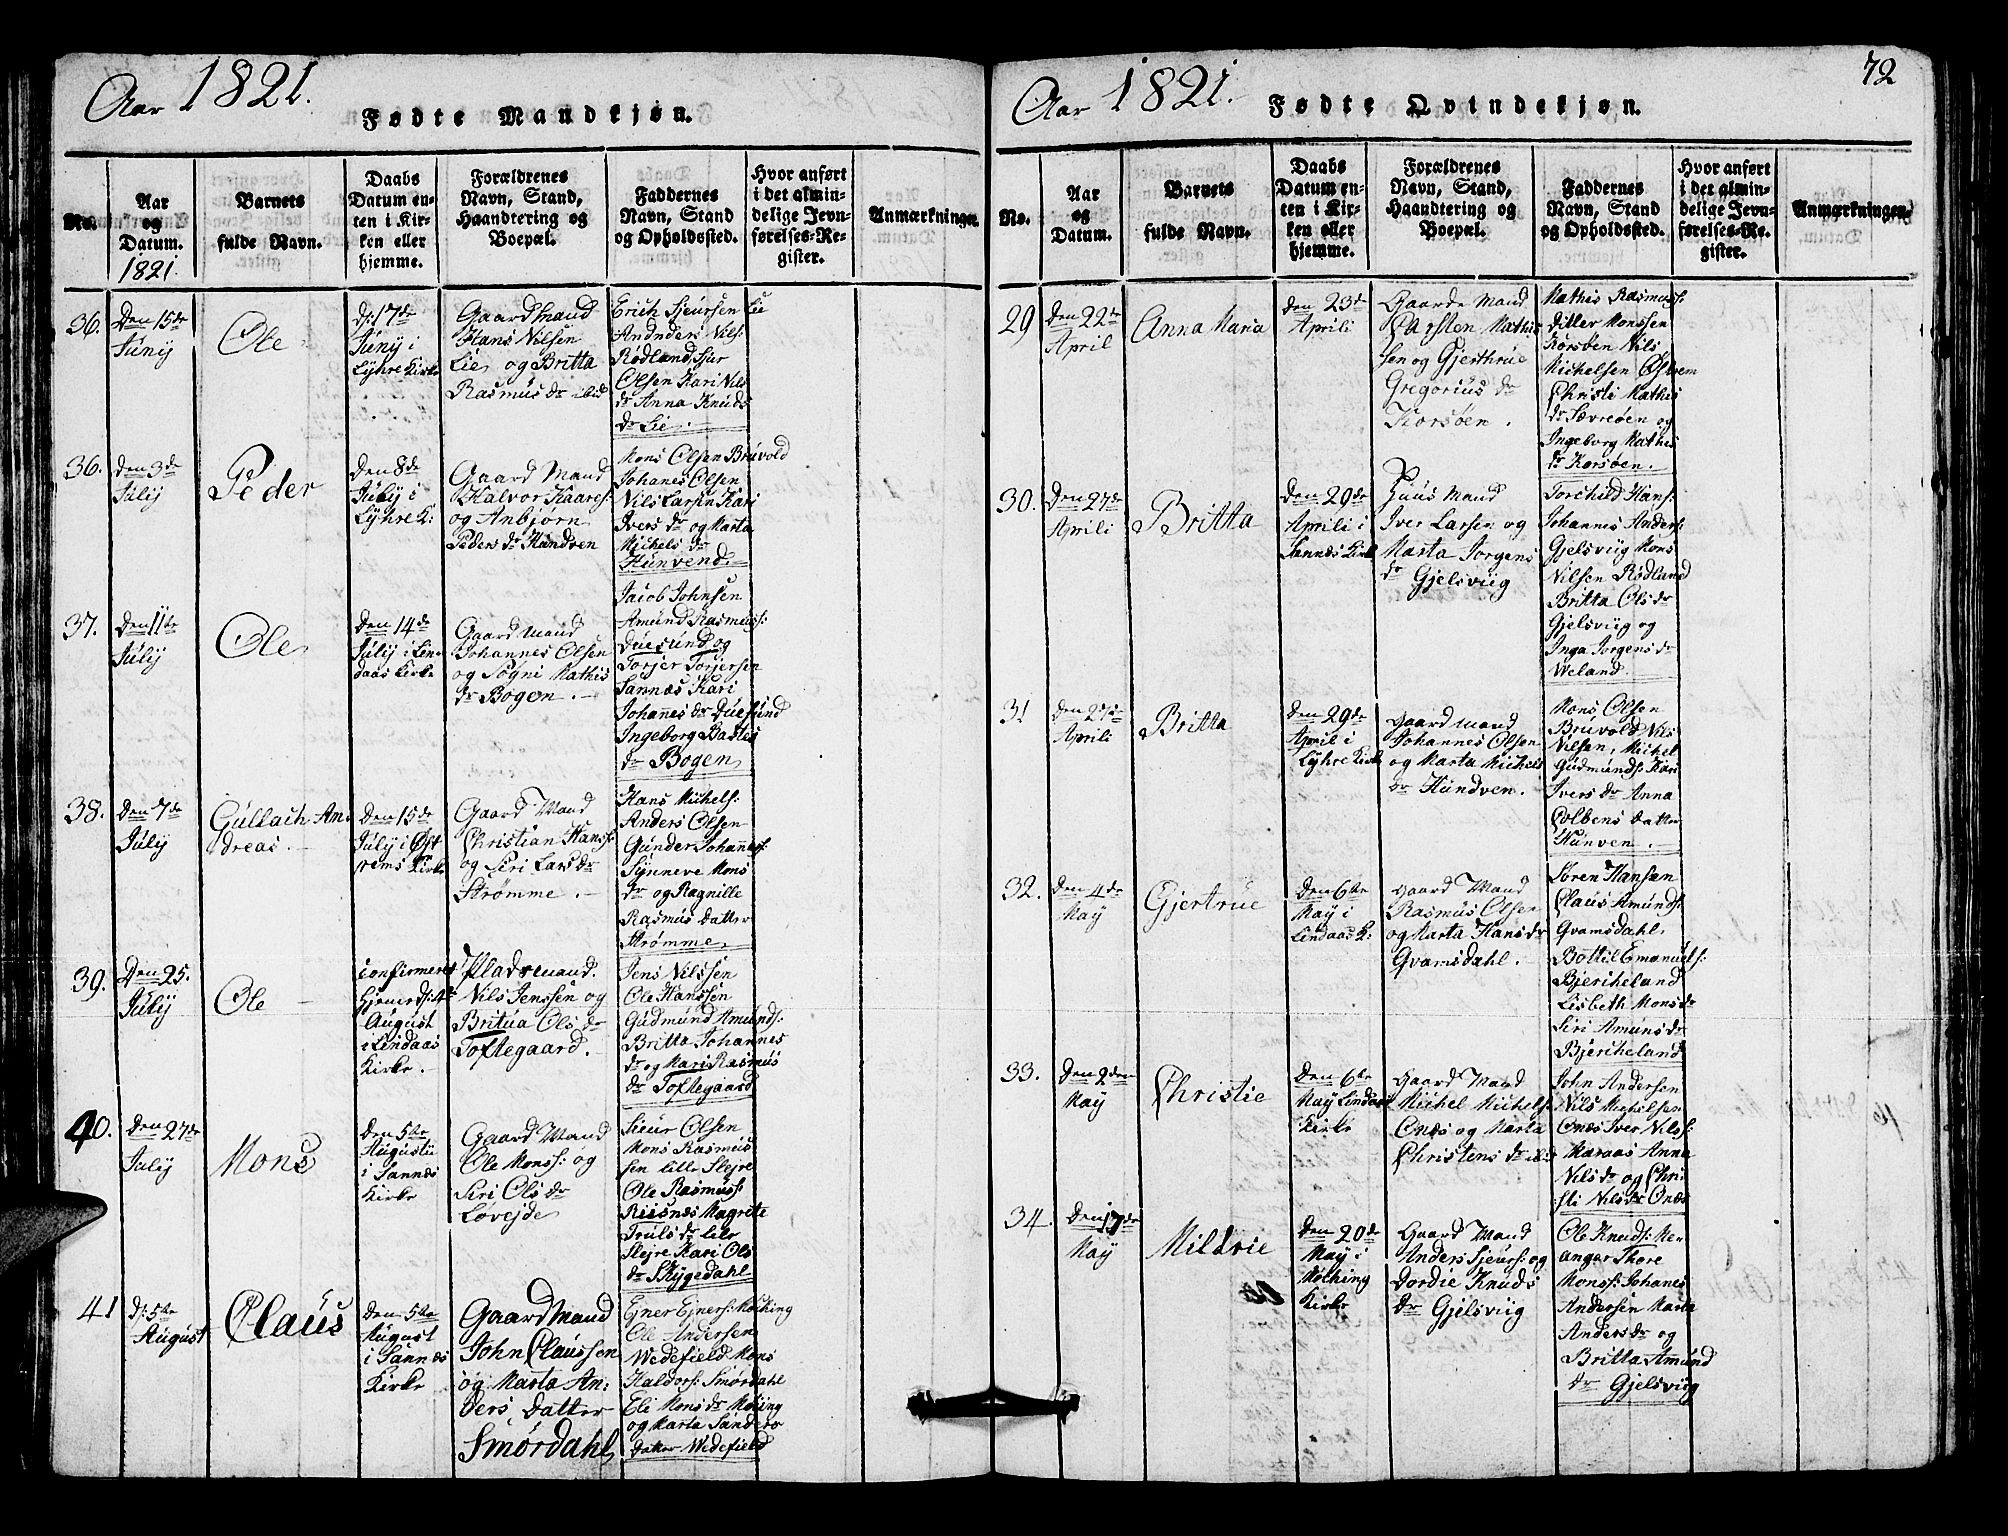 Aar 1821.
Fødte Mandkjøn.
No.
Aar
og
Datum.
1821.
Barnets
fulde Navn.
Daabs
Datum en-
ten i Kir-
ken eller
hjemme.
Forældrenes
Navn, Stand,
Haandtering og
Boepæl.
Faddernes
Navn, Stand
og Opholdssted.
Hvor anført
i det almin-
delige Jevn-
førelses-Re-
gister.
Anmærkninger.
36.
Den 15de
Juny
Ole
D: 17de
Juny i
Lyhre Kirke
Gaardmand
Hans Nilsen
Lie og Britta
Rasmus dr ibid
Erich Sjeursen Lie
Andnders Nils:
Rødland Sjur
Olsen Kari Nils
dr Anna Knuds
dr Lie.
36.
Den 3de
July
Peder
Den 8de
July i
Lyhre K:
Gaard Mand
Halvor Kaares:
og Anbjørn
Peders dr Hundven
Mons Olsen Bruvold
Johanes Olsen
Nils Larsen Kari
Ivers dr og Marta
Michels dr
Hunvend.
37.
Den 11te
July
Ole
Den 14de
July i Lin-
daas Kirke
Gaard Mand
Johannes Olsen
og Søgni Mathis
dr Bogen.
Jacob Johnsen
Amund Rasmuss:
Duesund og
Torjer Torjersen
Sannæs Kari
Johanes dr Duesund
Ingeborg Bastes
dr Bogen
38.
Den 7de
July
Gullach An-
dreas.
Den 15de
July i Øst
rems Kirke
Gaard Mand
Christian Hanss:
og Siri Lars dr
Strømme.
Hans Michels:
Anders Olsen
Gunder Johanness:
Synneve Mons
dr og Ragnille
Rasmus Datter
Strømme.
39.
Den 25.
July
Ole
confirmeret
Hjemed: 4de
August
i Lindaas
Kirke.
Pladsmand.
Nils Jenssen og
Britua Ols dr
Toftegaard.
Jens Nilssen
Ole Hanssen
Gudmund Amunds:
Britta Johannes
dr og Mari Rasmus
dr Toftegaard
40.
Den 27de
July
Mons
Den 5te
Augusti
i Sannes
Kirke
Gaard Mand
Ole Monss: og
Siri Ols dr
Løvejde
Sieur Olsen
Mons Rasmus
sen lille Slejre
Ole Rasmuss:
Riisnæs Magrete
Truls dr lile
Slejre Kari Ols
dr Skygedahl
41
D: 5te
August
Claus
Den 5te
August
i Sannes
Kirke
Gaard Mand
John Claussen
og Marta An:
ders Datter
Smørdahl
Ejner Ejners: Molking
Ole Andersen
Wedefield Mons
Haldors: Smørdahl
Eli Mons dr Molking
og Marta Sanders
Datter Wedefield
Aar 1821.
Fødte Qvindekjøn.
72
No.
Aar
og
Datum.
Barnets
fulde Navn.
Daabs
Datum en-
ten i Kir-
ken eller
hjemme.
Forældrenes
Navn, Stand,
Haandtering og
Boepæl.
Faddernes
Navn, Stand
og Opholdssted.
Hvor anført
i det almin-
delige Jevn-
førelses-Re-
gister.
Anmærkninger.
29
Den 22de
April
Anna Maria
Den 23de
Aprili
Gaarde Mand
Carsten Mathis
sen og Gjerthrue
Gregorius dr
Korsøen.
Mathis Rasmuss:
Ditler Monssen
Korsøen Nils
Michelsen Østrem
Christi Mathis
dr Sævreøen og
Ingeborg Mathis
dr Korsøen.
30.
Den 27de
Aprili
Britta
Den 29de
Aprili i
Sannæs Kirke
Huus Mand
Iver Larsen og
Marta Jorgens
dr Gjelsviig
Torchild Hans:
Johannes Anders:
Gjelsviig Mons
Nilsen Rødland
Britta Ols dr
Gjelsviig og
Inga Jorgens dr
Weland.
31
Den 27de
Aprili
Britta
Den 29de
April i
Lyhre Kirke
Gaard Mand
Johannes Olsen
og Marta Michels
dr Hundven.
Mons Olsen
Bruvold Nils
Nilsen, Michel
Gudmunds: Kari
Ivers dr Anna
Colbens Datter
Hunven.
32.
Den 4de
May
Gjertrue
Den 6te
May i
Lindaas K:
Gaard Mand
Rasmus Olsen
og Marta Hans dr
Qvamsdahl.
Søren Hansen
Claus Amunds:
Qvamsdahl.
Bottil Emanuels:
Bjeriheland
Lisbeth Mons dr
Siri Amuns dr
Bjeriheland
33.
Den 2den
May
Christie
Den 6te
May Lindaas
Kirke
Gaard Mand
Michel Michels:
Onæs og Marta
Christens dr ibid
John Andersen
Nils Michelsen
Onæs Iver Nilss:
Maraas Anna
Nils dr og Chri-
sti Nils dr Onæs
34.
Den 17de
May
Mildrie
Den 20de
May i
Møching
Kirke
Gaard Mand
Anders Sjeurs: og
Dordie Knuds
dr Gjelsviig
Ole Knuds: Me-
anger Thore
Monss: Johanes
Andersen Marta
Anders dr og
Britta Amund
dr Gjelsviig